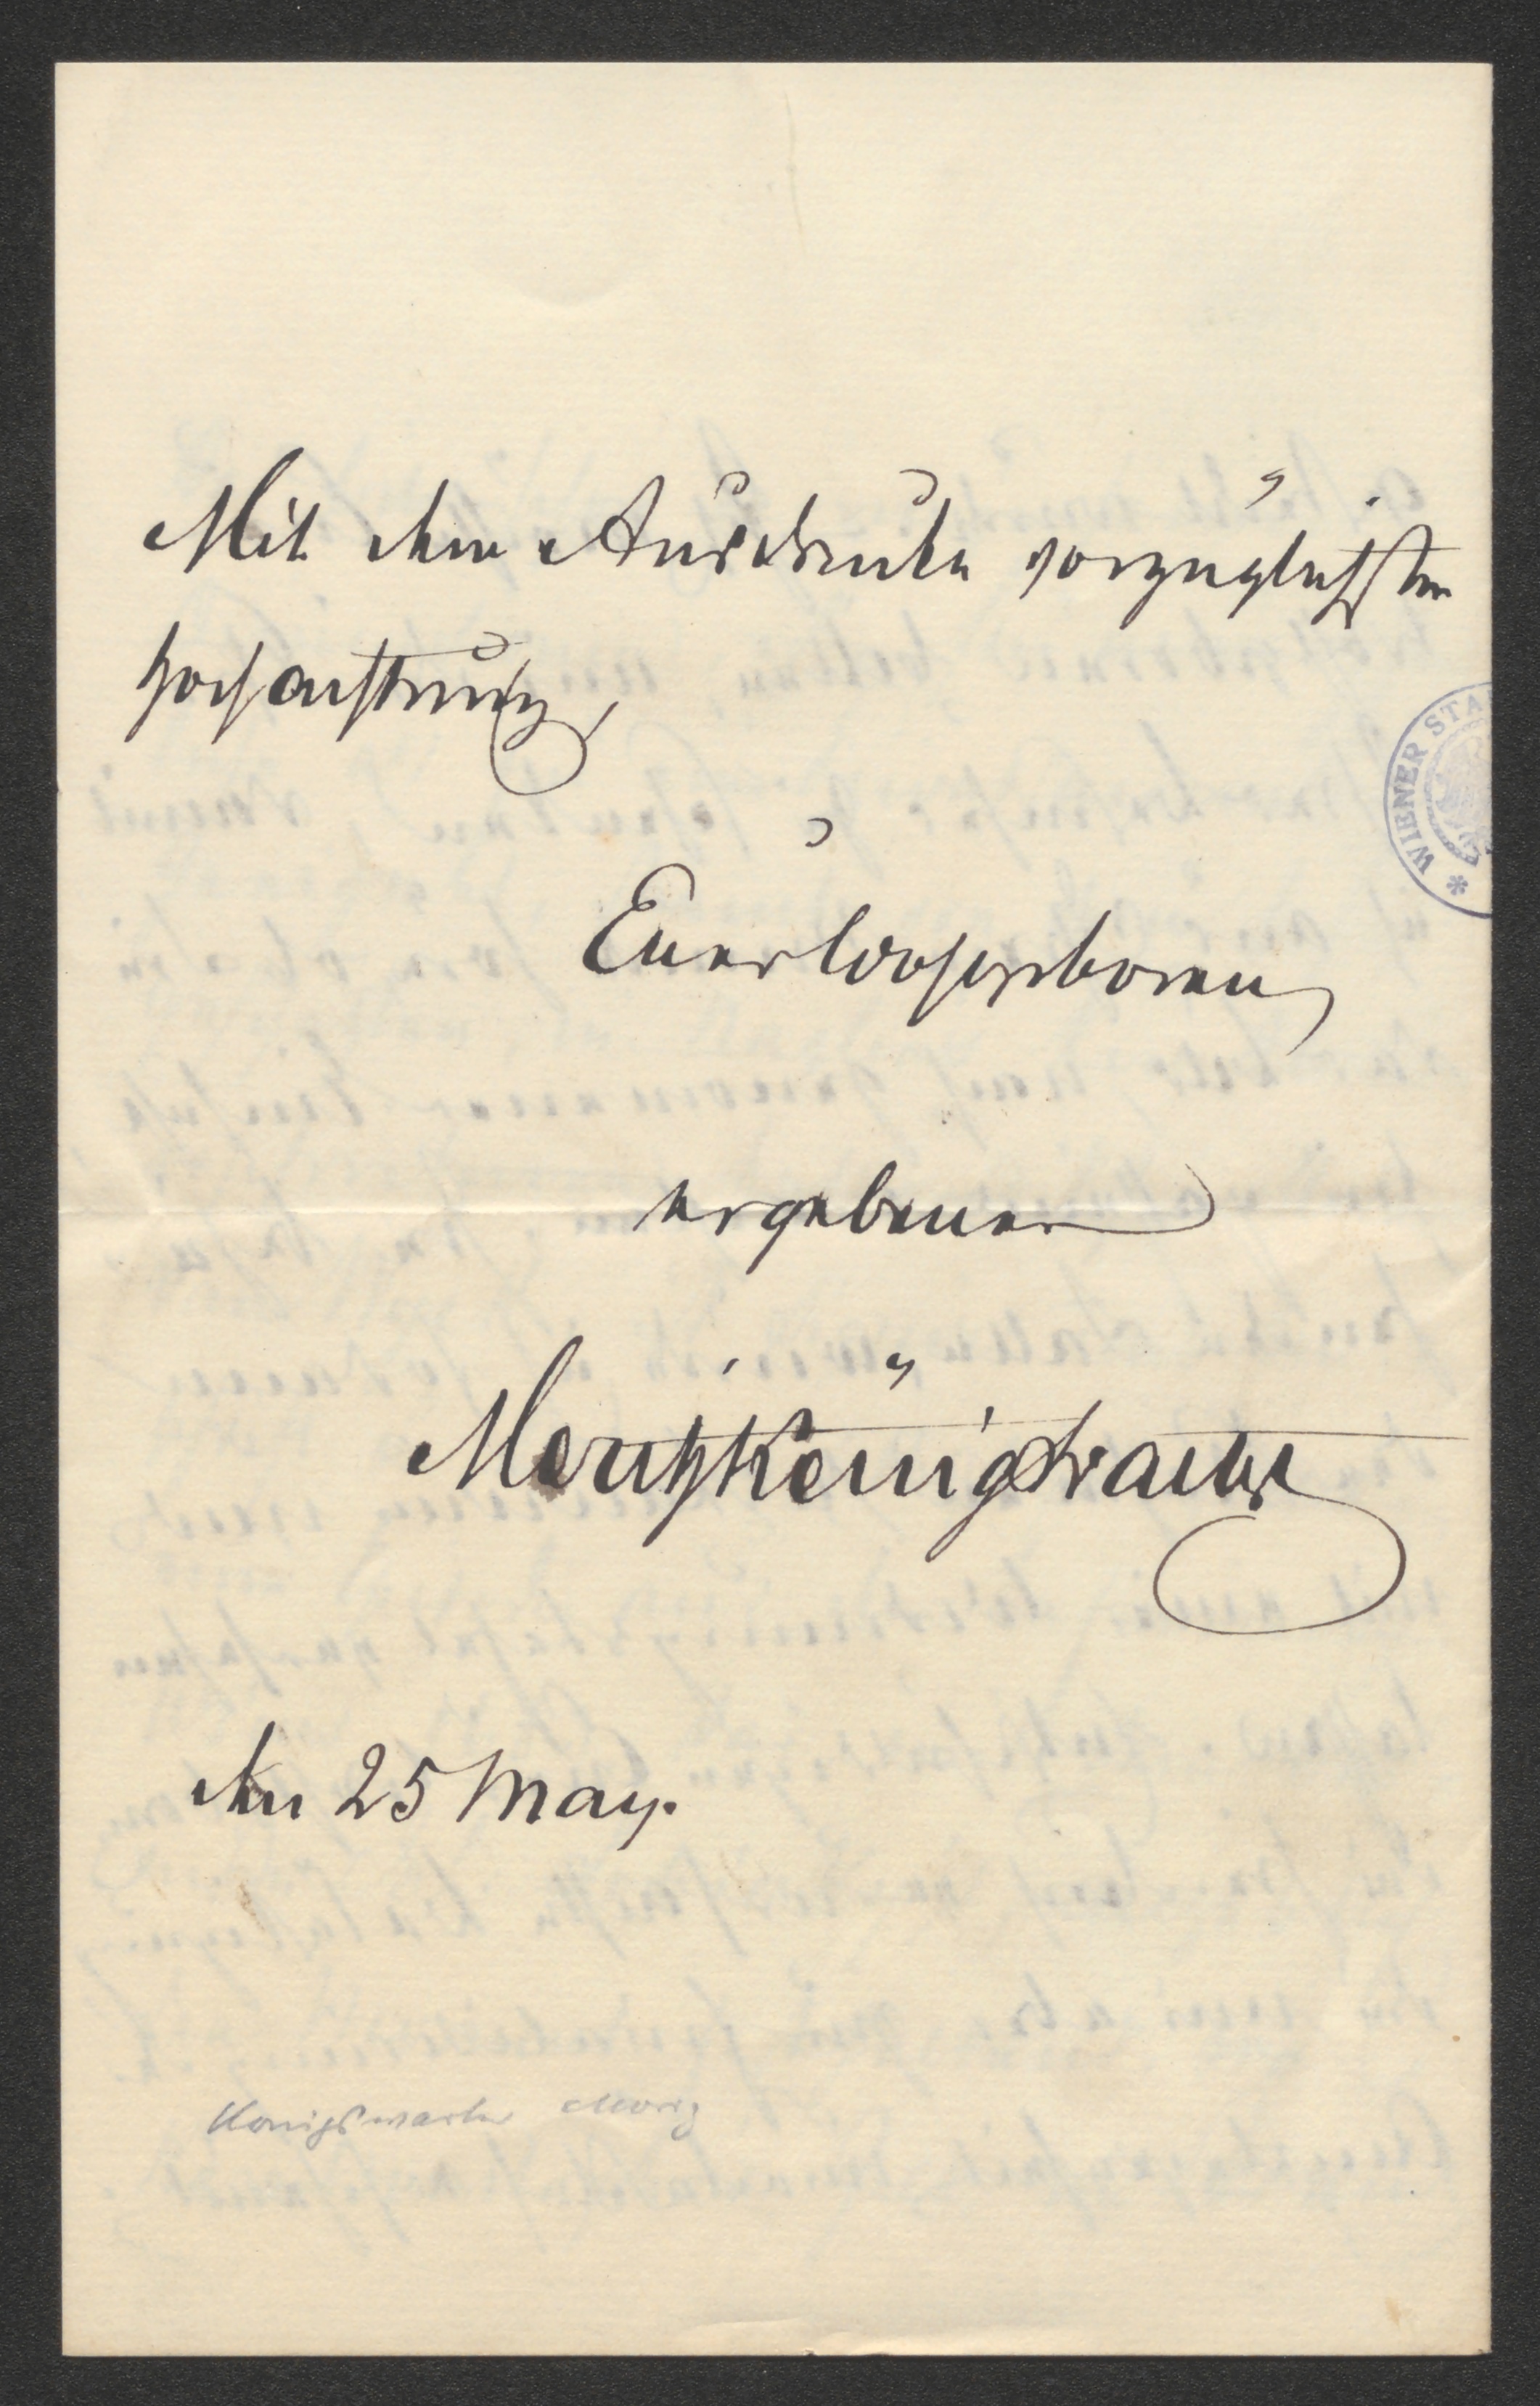 Mit dem Ausdrucke vorzüglichster
Hochachtung
Euer Wohlgeboren
ergebener
Moritz Königswarter
den 25 May.
Königswarter Moriz
* WIENER STA